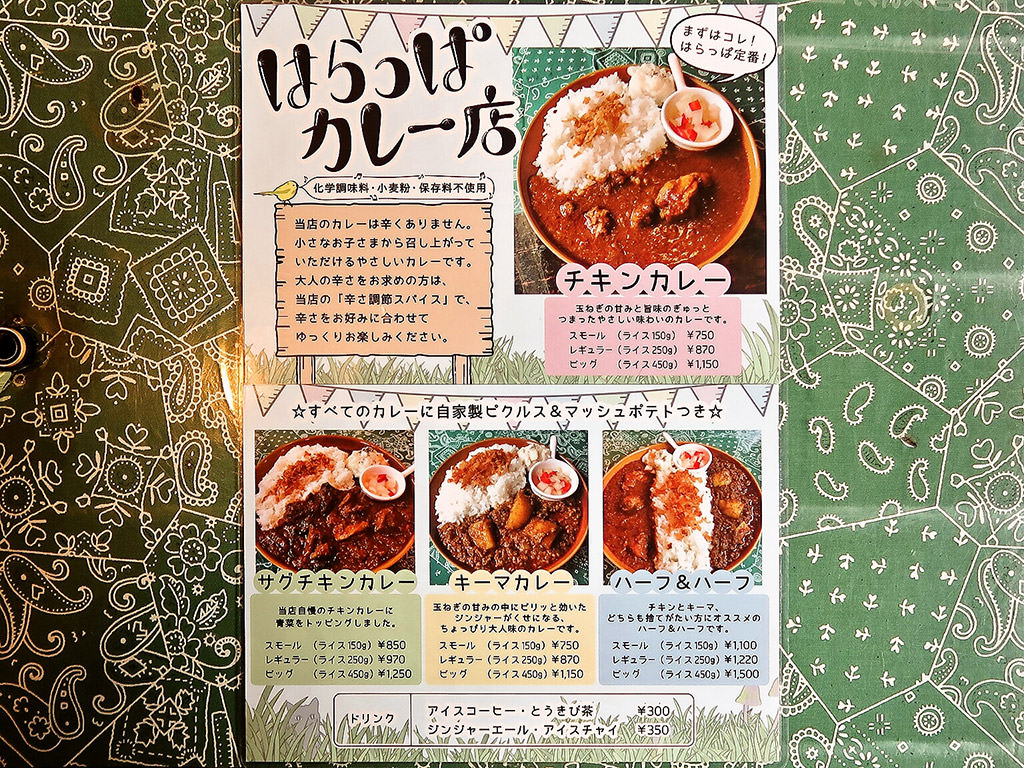 はらっぱ
カレー店
まずはコレ!
はらっぱ定番!
化学調味料・小麦粉・保存料不使用
当店のカレーは辛くありません。
小さなお子さまから召し上がって
いただけるやさしいカレーです。
大人の辛さをお求めの方は、
当店の「辛さ調節スパイス」で、
辛さをお好みに合わせて
ゆっくりお楽しみください。
チキンカレー
玉ねぎの甘みと旨味のぎゅっと
つまったやさしい味わいのカレーです。
スモール (ライス150g) ¥750
レギュラー (ライス250g) ¥870
ビッグ (ライス450g) ¥1,150
☆すべてのカレーに自家製ピクルス&マッシュポテトつき☆
サグチキンカレー
当店自慢のチキンカレーに
青菜をトッピングしました。
スモール (ライス150g) ¥850
レギュラー (ライス250g) ¥970
ビッグ (ライス450g) ¥1,250
キーマカレー
玉ねぎの甘みの中にピリッと効いた
ジンジャーがくせになる、
ちょっぴり大人味のカレーです。
スモール (ライス150g) ¥750
レギュラー (ライス250g) ¥870
ビッグ (ライス450g) ¥1,150
ハーフ&ハーフ
チキンとキーマ、
どちらも捨てがたい方にオススメの
ハーフ&ハーフです。
スモール (ライス150g) ¥1,100
レギュラー (ライス250g) ¥1,220
ビッグ (ライス450g) ¥1,500
ドリンク
アイスコーヒー・とうきび茶 ¥300
ジンジャーエール・アイスチャイ ¥350